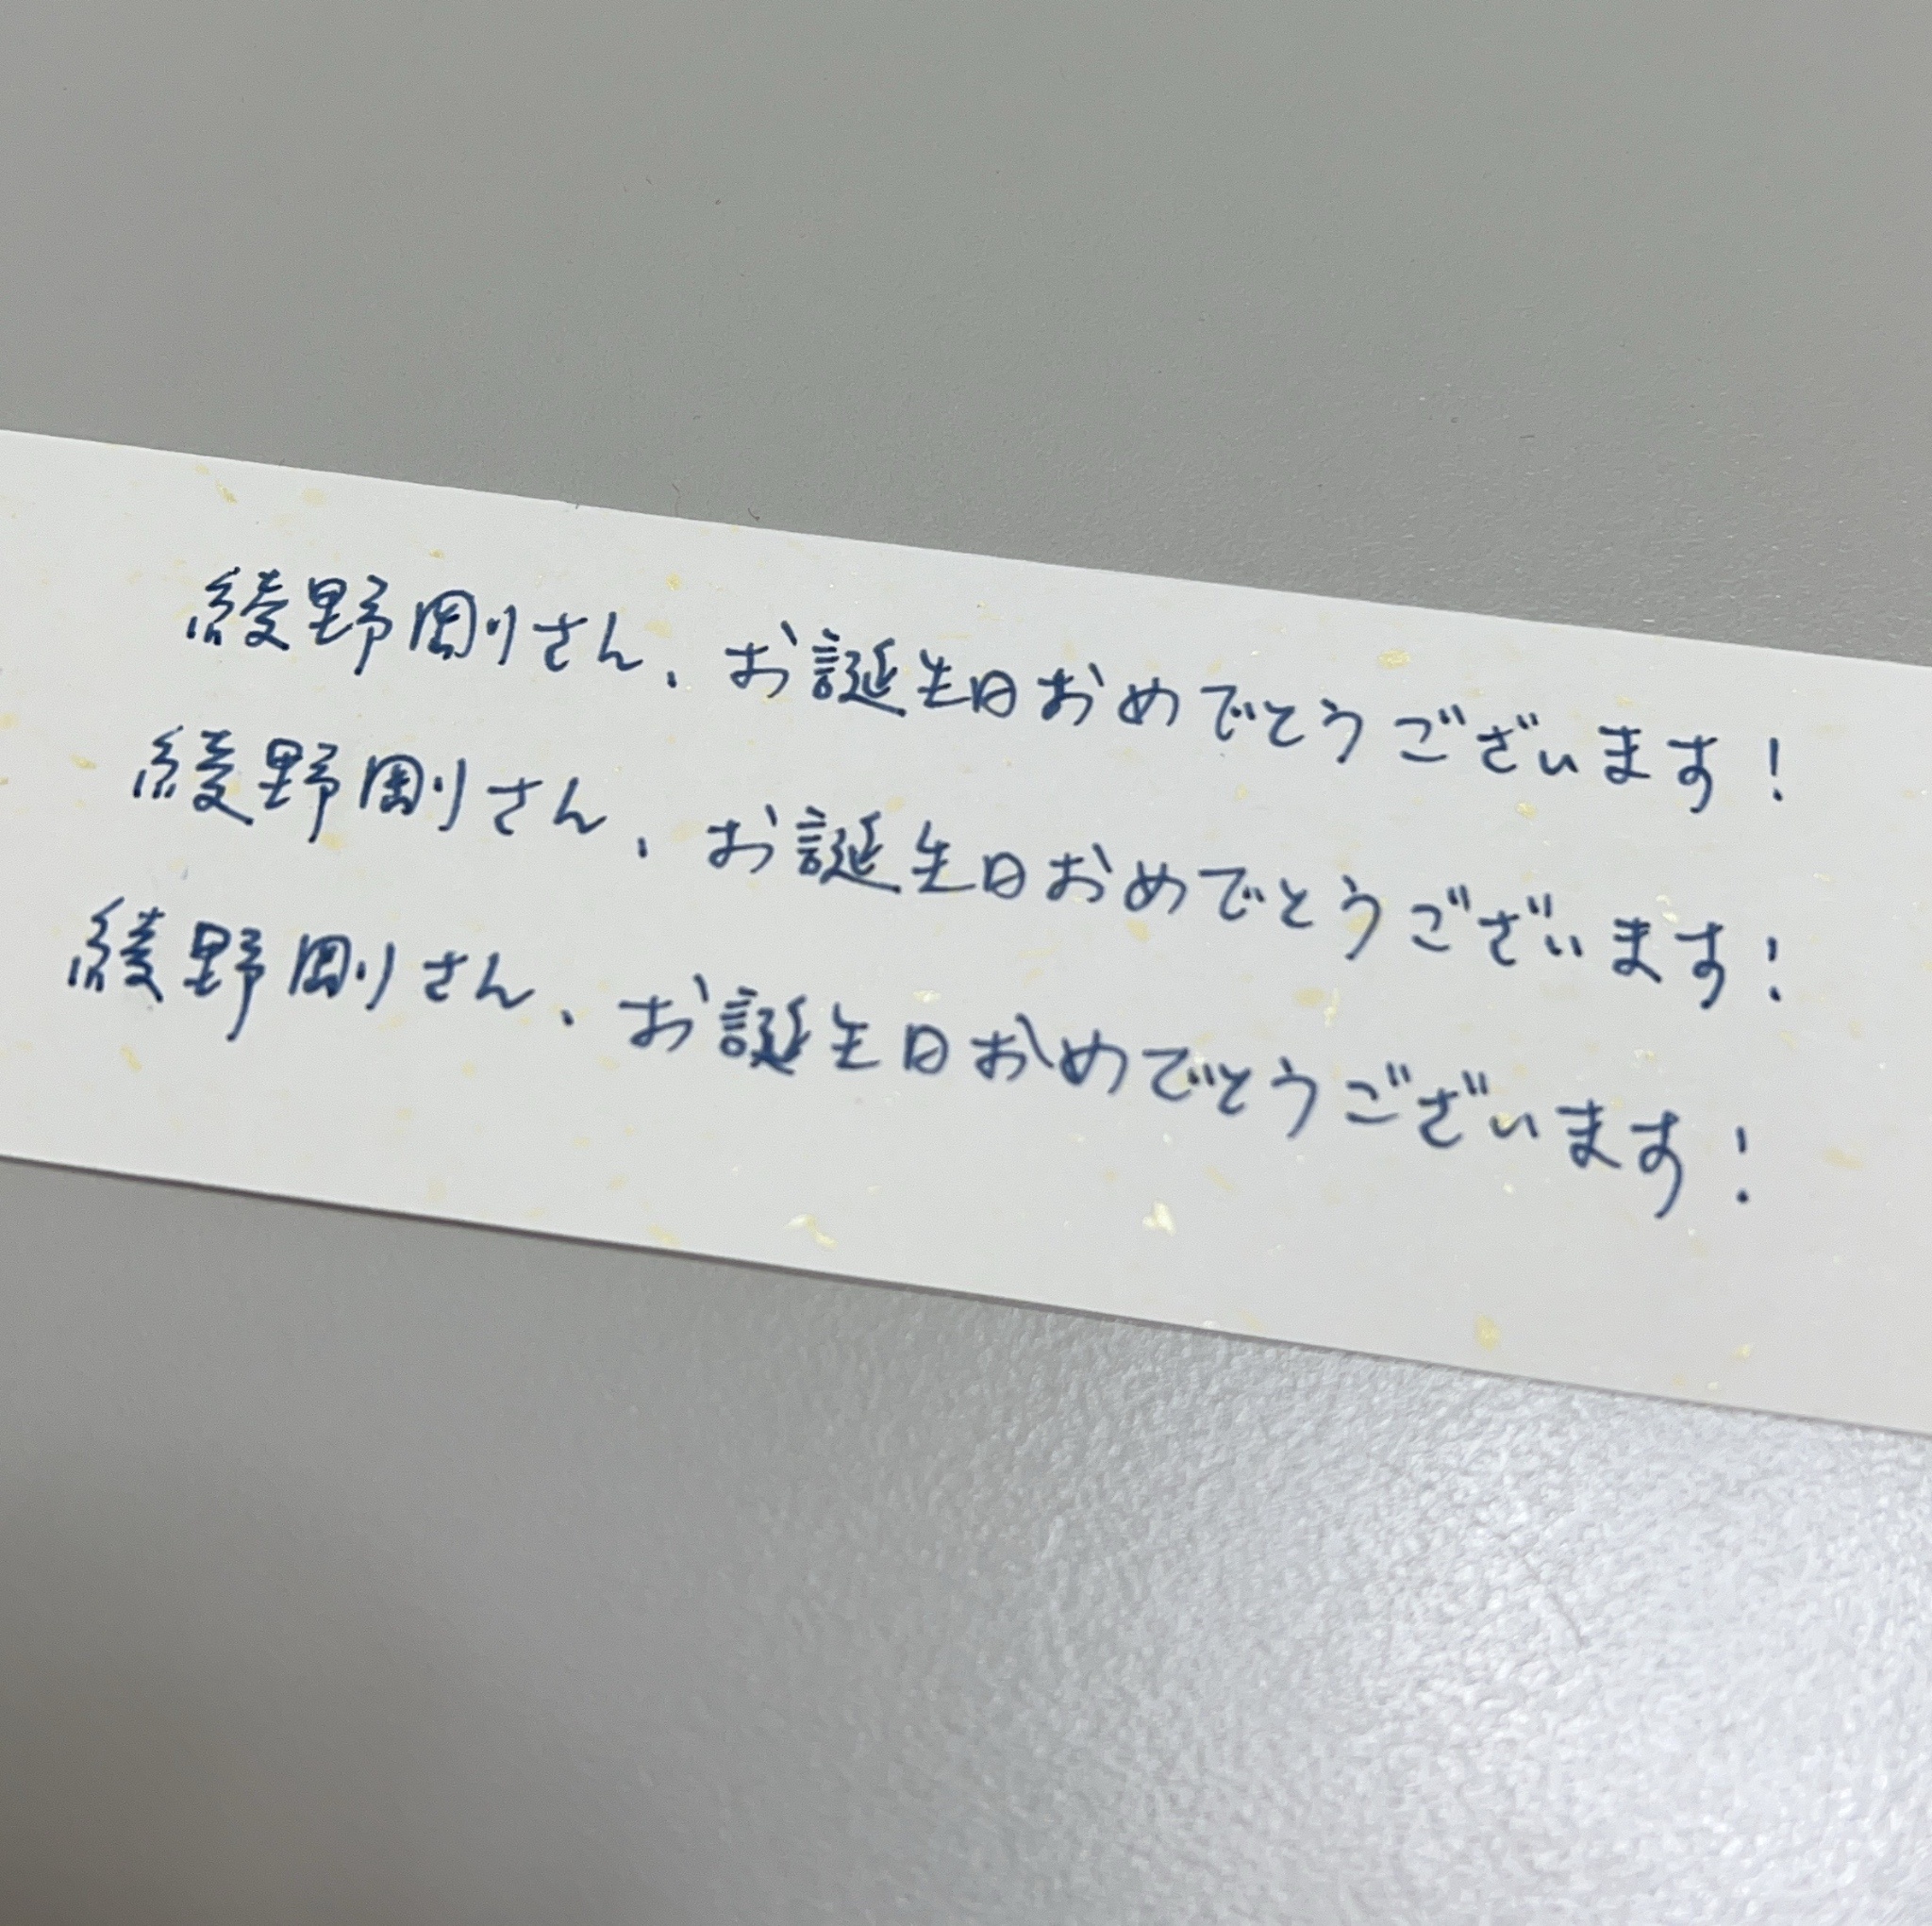 綾野剛さん、お誕生日おめでとうございます!
綾野剛さん、お誕生日おめでとうございます!
綾野剛さん、お誕生日おめでとうございます!